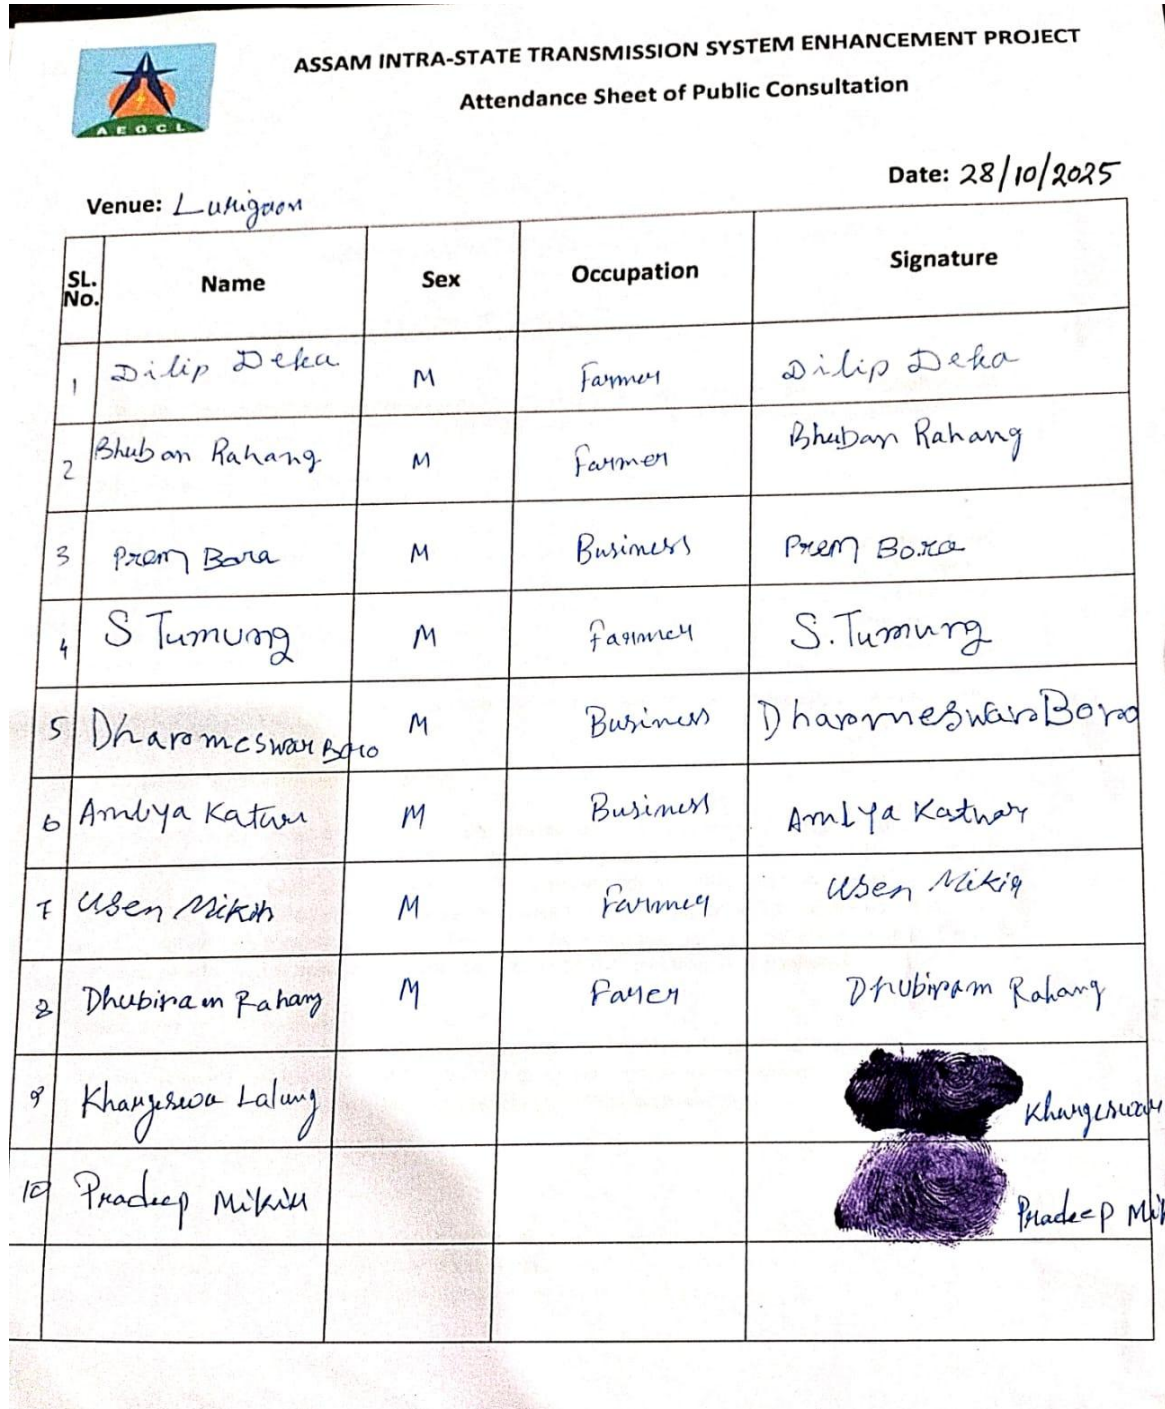 AEGCL
ASSAM INTRA-STATE TRANSMISSION SYSTEM ENHANCEMENT PROJECT
Attendance Sheet of Public Consultation
Date: 28/10/2025
Venue:
SL. No. Name Sex Occupation Signature
1 Dilip Deka M Farmer Dilip Deka
2 Bhuban Rahang M Farmer Bhuban Rahang
3 Prem Bora M Business Prem Bora
4 S Tumung M Farmer S. Tumung
5 Dharomeswar Boro M Business Dharomeswar Boro
6 M Business
7 Usen Mikir M Farmer Usen Mikir
8 Dhubiram Rahang M Farer Dhubiram Rahang
9 Lalung
10 Pradeep Mikir Pradeep Mik